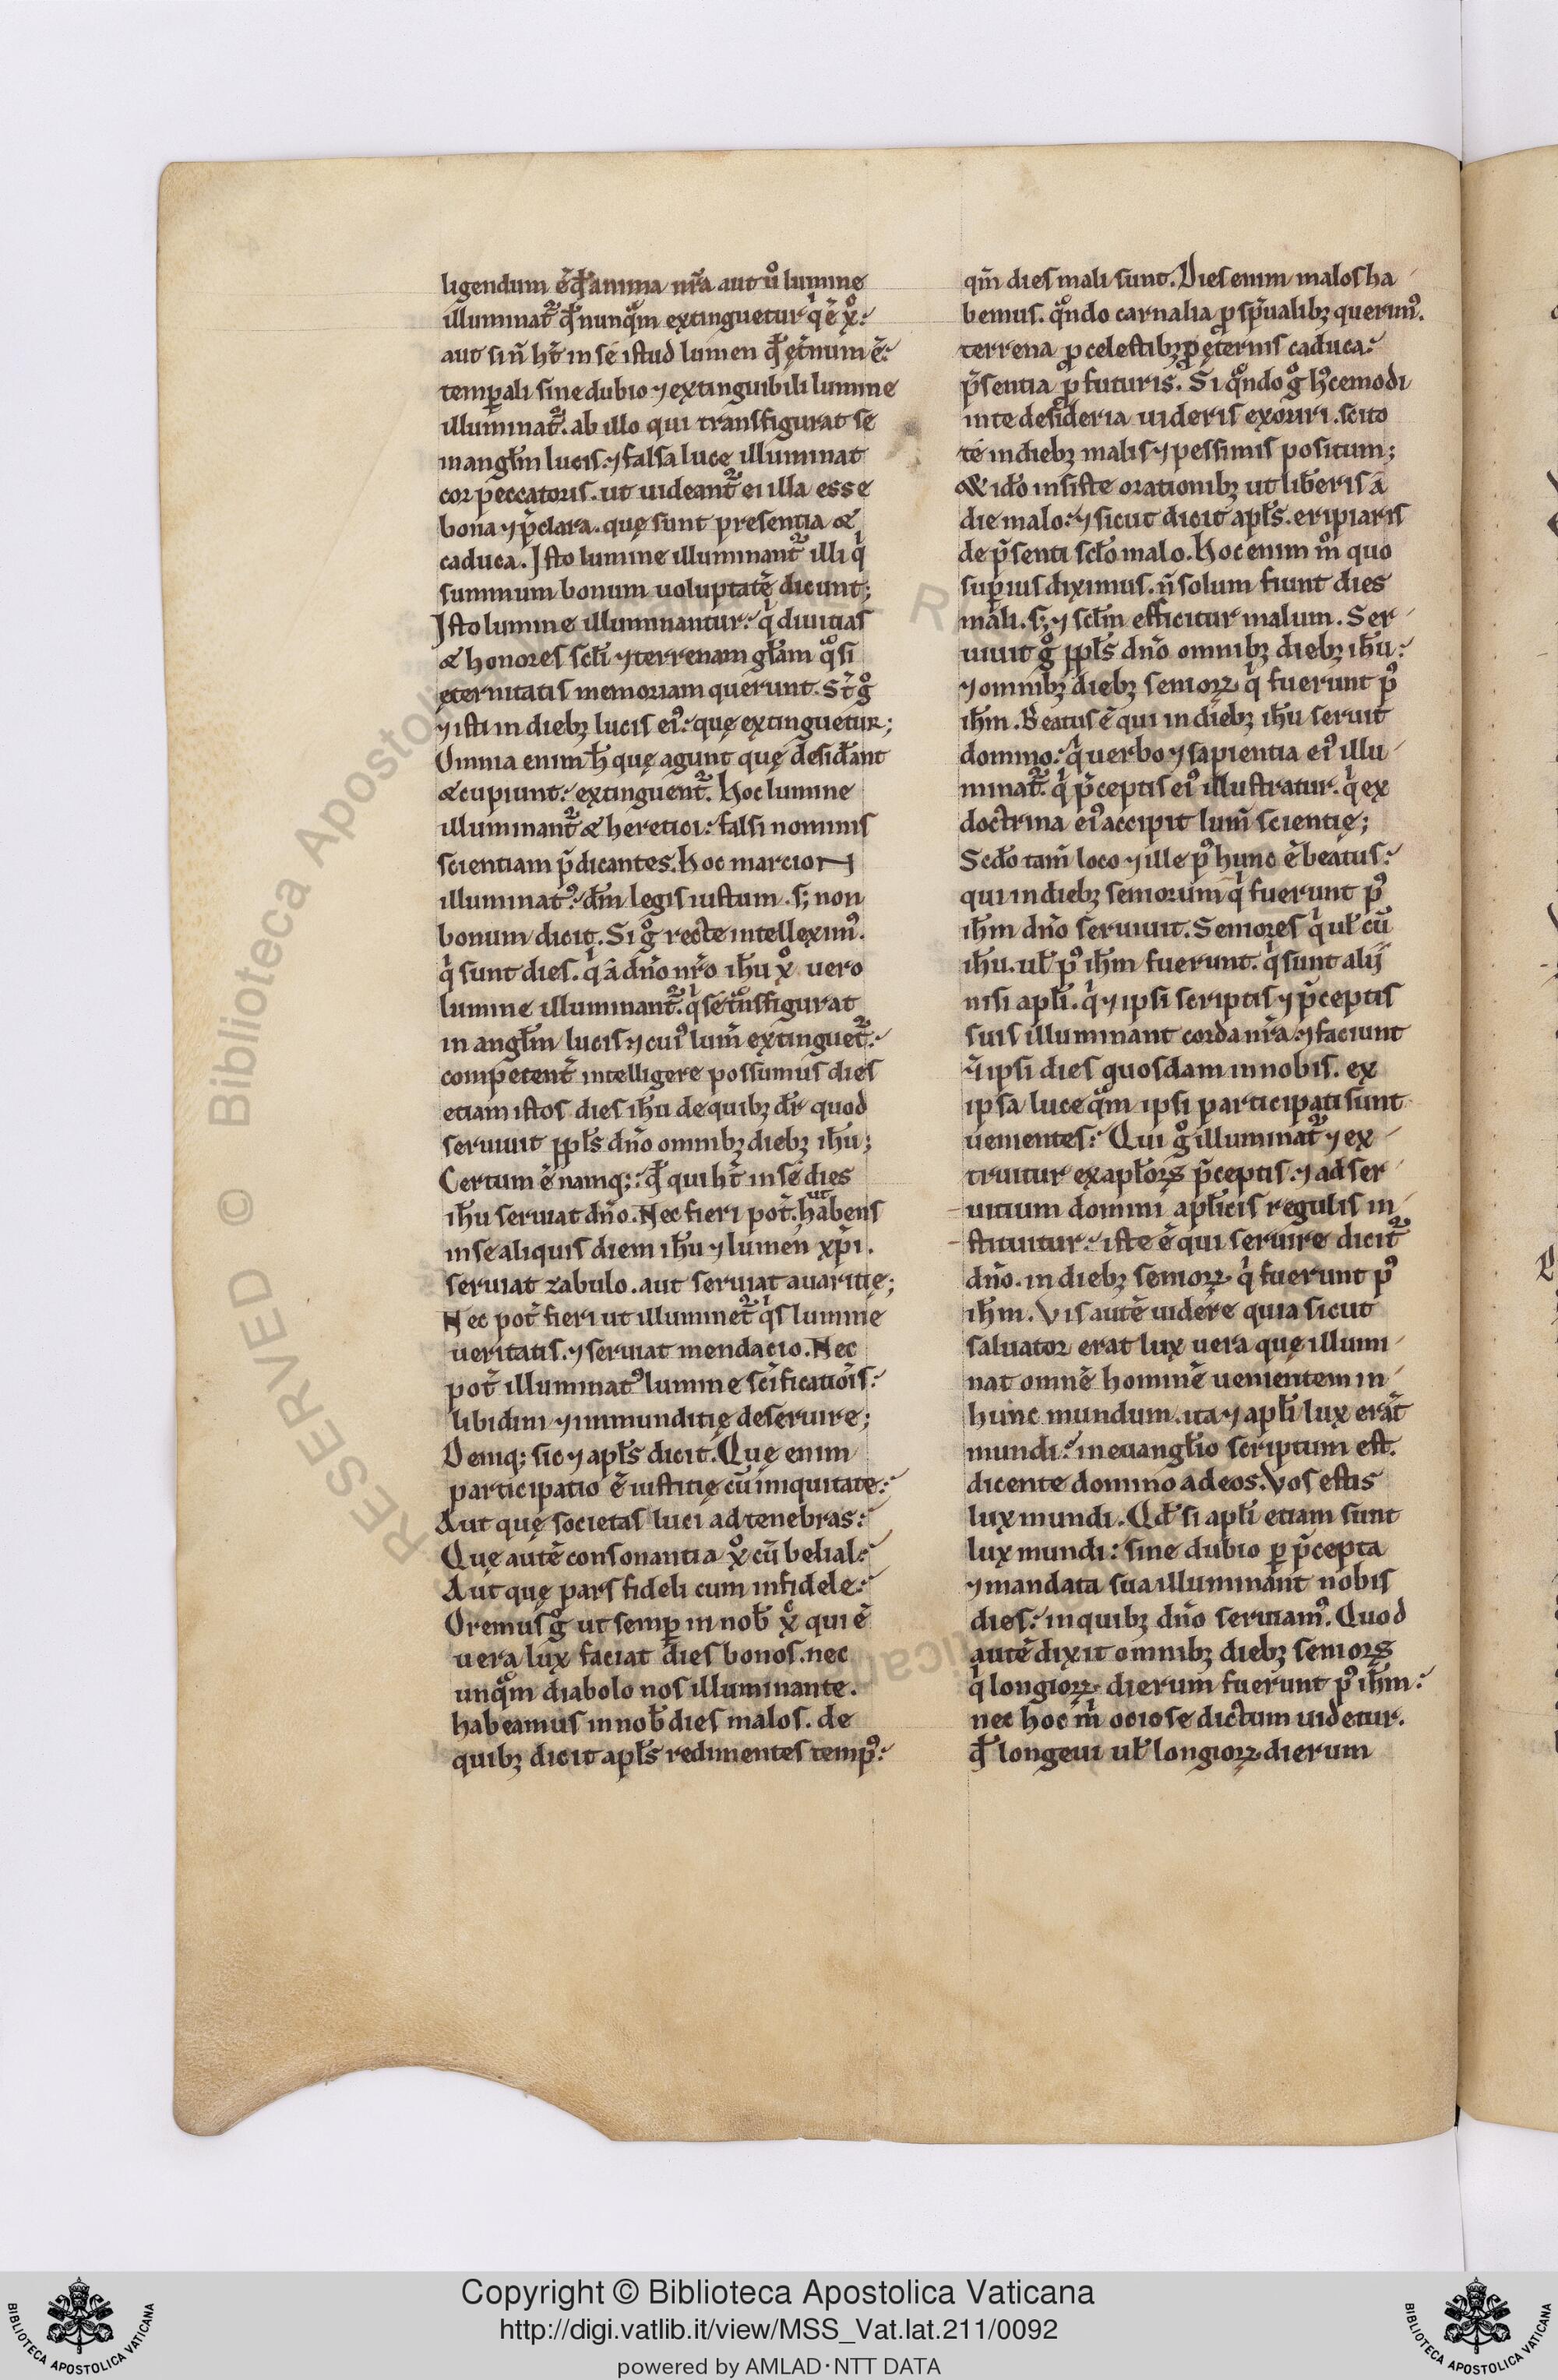 ligendum ē qđ anima nr̄a aut ů lumine
illuminat᷑ qđ nunqͦm extinguetur qͥ ē xͦ:
aut si n̄ ht̄ in se istud lumen qđ ęt̄num ē:
temꝑali sine dubio ⁊ extinguibili lumine
illuminat᷑. ab illo qui transfigurat se
in angl̄m lucis. ⁊ falsa luce illuminat
cor peccatoris. ut uideant᷑ ei illa esse
bona ⁊ p̄clara. quę sunt presentia &
caduca. Isto lumine illuminant᷑ illi qͥ
summum bonum uoluptatē dicunt;
Isto lumine illuminantur: qͥ diuitias
& honores sc̄li ⁊ terrenam gl̄am qͦsi
ęternitatis memoriam querunt. St̄ gͦ
⁊ isti in diebꝫ lucis eiꝰ: quę extinguetur;
Omnia enim h̄ quę agunt quę desid̄ant
& cupiunt: extinguent᷑. Hoc lumine
illuminant᷑ & heretici: falsi nominis
scientiam p̄dicantes. Hoc marcion
illuminatꝰ: dm̄ legis iustum. sꝫ non
bonum dicit. Si gͦ recte intelleximꝰ.
qͥ sunt dies. qͥ a dn̄o nr̄o ih̄u xͦ uero
lumine illuminant᷑. qͥ se tͣnsfigurat
in angl̄m lucis ⁊ cuiꝰ lum̄ extinguet᷑:
competent̄ intelligere possumus dies
etiam istos dies ih̄u de quibꝫ dr̄ quod
seruiuit ppl̄s dn̄o omnibꝫ diebꝫ ih̄u;
Certum ē namqꝫ: qđ qui ht̄ in se dies
ih̄u seruiat dn̄o. Nec fieri pot̄. ut habens
in se aliquis diem ih̄u ⁊ lumen xp̄i.
seruiat zabulo. aut seruiat auaritię;
Nec pot̄ fieri ut illuminet᷑ qͥs lumine
ueritatis. ⁊ seruiat mendacio. Nec
pot̄ illuminatꝰ lumine sc̄ificatiōis:
libidini ⁊ immunditię deseruire;
Deniqꝫ sic ⁊ apl̄s dicit. Quę enim
participatio ē iustitię cū iniquitate:
Aut quę societas luci ad tenebras:
Quę autē consonantia xͦ cū belial:
Aut quę pars fideli cum infidele:
Oremus gͦ ut semꝑ in nob̄ xͦ qui ē
uera lux faciat dies bonos. nec
unqͦm diabolo nos illuminante.
habeamus in nob̄ dies malos. de
quibꝫ dicit apl̄s redimentes tempꝰ:
qm̄ dies mali sunt. Dies enim malos ha
bemus. qͦndo carnalia ꝓ sp̄ualibꝫ querimꝰ.
terrena ꝓ celestibꝫ ꝓ ęternis caduca:
p̄sentia ꝓ futuris. Si qͦndo gͦ hꝰcemodi
in te desideria uideris exoriri. scito
te in diebꝫ malis ⁊ pessimis positum;
& ido insiste orationibꝫ ut lib̄eris a
die malo: ⁊ sicut dicit apl̄s. eripiaris
de p̄senti scl̄o malo. Hoc enim mͦ quo
suꝑius diximus. n̄ solum fiunt dies
mali. sꝫ ⁊ scl̄m efficitur malum. Ser
uiuit gͦ ppl̄s dn̄o omnibꝫ diebꝫ ih̄u:
⁊ omnibꝫ diebꝫ senioꝝ qͥ fuerunt pꝰ
ih̄m. Beatus ē qui in diebꝫ ih̄u seruit
domino: qͥ uerbo ⁊ sapientia eiꝰ illu
minat᷑. qͥ p̄ceptis eiꝰ illustratur. qͥ ex
doctrina eiꝰ accipit lum̄ scientię;
Scđo tam̄ loco ⁊ ille pꝰ hunc ē beatus:
qui in diebꝫ seniorum qͥ fuerunt pꝰ
ih̄m dn̄o seruiuit. Seniores qͥ ul̄ cū
ih̄u. ul̄ pꝰ ih̄m fuerunt. qͥ sunt alij
nisi apl̄i. qͥ ⁊ ipsi scriptis ⁊ p̄ceptis
suis illuminant corda nr̄a. ⁊ faciunt
⁊ ipsi dies quosdam in nobis. ex
ipsa luce qͣm ipsi participati sunt
uenientes: Qui gͦ illuminat᷑ ⁊ ex
truitur ex apl̄oꝝ p̄ceptis. ⁊ ad ser
uitium domini apl̄icis regulis in
stituitur: iste ē qui seruire dicit᷑
dn̄o. in diebꝫ senioꝝ qͥ fuerunt pꝰ
ih̄m. Vis autē uidere quia sicut
saluator erat lux uera quę illumi
nat omnē hominē uenientem in
hunc mundum. ita ⁊ apl̄i lux erāt
mundi: in euangl̄io scriptum est.
dicente domino ad eos. Vos estis
lux mundi. Qđ si apl̄i etiam sunt
lux mundi: sine dubio ꝑ p̄cepta
⁊ mandata sua illuminant nobis
dies: in quibꝫ dn̄o seruiamꝰ. Quod
autē dixit omnibꝫ diebꝫ senioꝝ
qͥ longioꝝ dierum fuerunt pꝰ ih̄m:
nec hoc mͥ ociose dictum uidetur.
qđ longeui ul̄ longioꝝ dierum
RESERVED © Biblioteca Apostolica
Copyright © Biblioteca Apostolica Vaticana
http://digi.vatlib.it/view/MSS_Vat.lat.211/0092
powered by AMLAD·NTT DATA
BIBLIOTECA APOSTOLICA VATICANA
BIBLIOTECA APOSTOLICA VATICANA